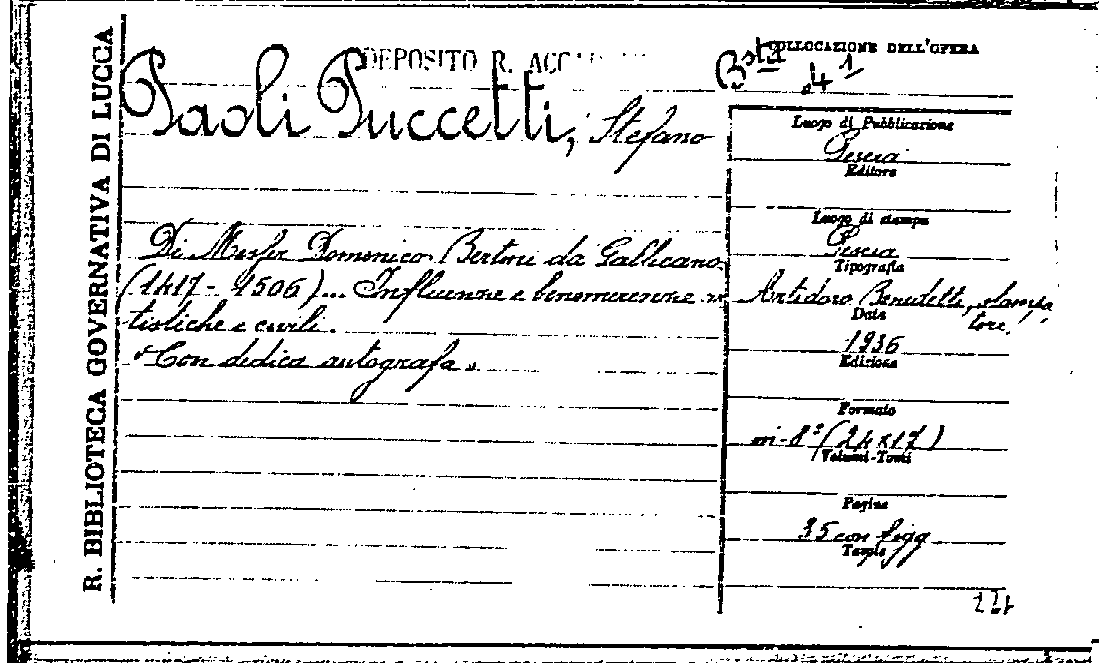 R. BIBLIOTECA GOVERNATIVA DI LUCCA
DEPOSITO R.
COLLOCAZIONE DELL'OPERA
Bsta 41
Paoli Puccetti, Stefano
Luogo di Pubblicazione
Pescia
Editore
Luogo di stampa
Pescia
Tipografia
Artidoro Benedetti, stampa
tore.
Data
1936
Edizione
Formato
in-8° (24x17)
Volumi-Tomi
Pagine
35 con figg
Tavole
Di Messer Domenico Bertini da Gallicano
(1417-1506)... Influenze e benemerenze ar
tistiche e civili.
"Con dedica autografa".